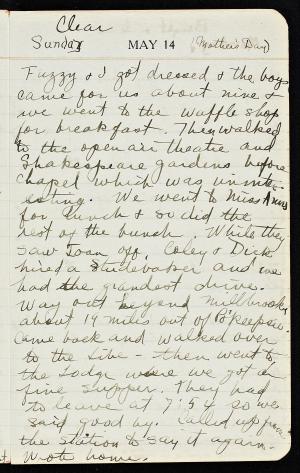 Clear
Sunday MAY 14 (Mother's Day)
Fuzzy & I got dressed & the boys
came for us about nine &
we went to the waffle shop
for breakfast. They walked
to the open air theatre and
Shakespeare gardens before
chapel which was uninter-
esting. We went to Miss Anns
for lunch & so did the
rest of the bunch. While they
saw Joan off, Coley & Dick
hired a Studebaker and we
had the grandest drive.
Way out beyond Millbrook,
about 19 miles out of Po'keepsie.
Came back and walked over
to the Libe - then went to
the Lodge where we got a
fine supper. They had
to leave at 7:54 so we
said good by. Called up from
the station to say it again.
Wrote home.